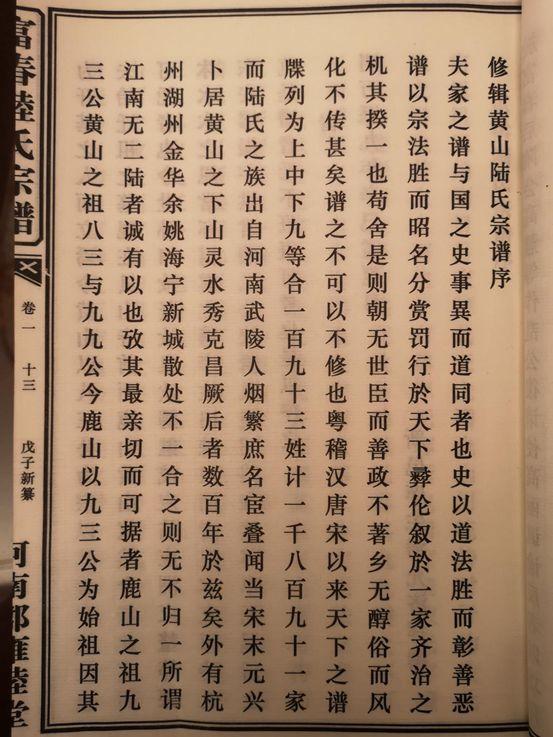 修辑黄山陆氏宗谱序
夫家之谱与国之史事異而道同者也史以道法胜而彰善恶
谱以宗法胜而昭名分赏罚行於天下彝伦叙於一家齐治之
机其揆一也苟舍是则朝无世臣而善政不著乡无醇俗而风
化不传甚矣谱之不可以不修也粤稽汉唐宋以来天下之谱
牒列为上中下九等合一百九十三姓计一千八百九十一家
而陆氏之族出自河南武陵人烟繁庶名宦叠闻当宋末元兴
卜居黄山之下山灵水秀克昌厥后者数百年於兹矣外有杭
州湖州金华余姚海宁新城散处不一合之则无不归一所谓
江南无二陆者诚有以也攷其最亲切而可据者鹿山之祖九
三公黄山之祖八三与九九公今鹿山以九三公为始祖因其
富春陸氏宗譜
卷一 十三
戊子新纂
河南郡雍睦堂